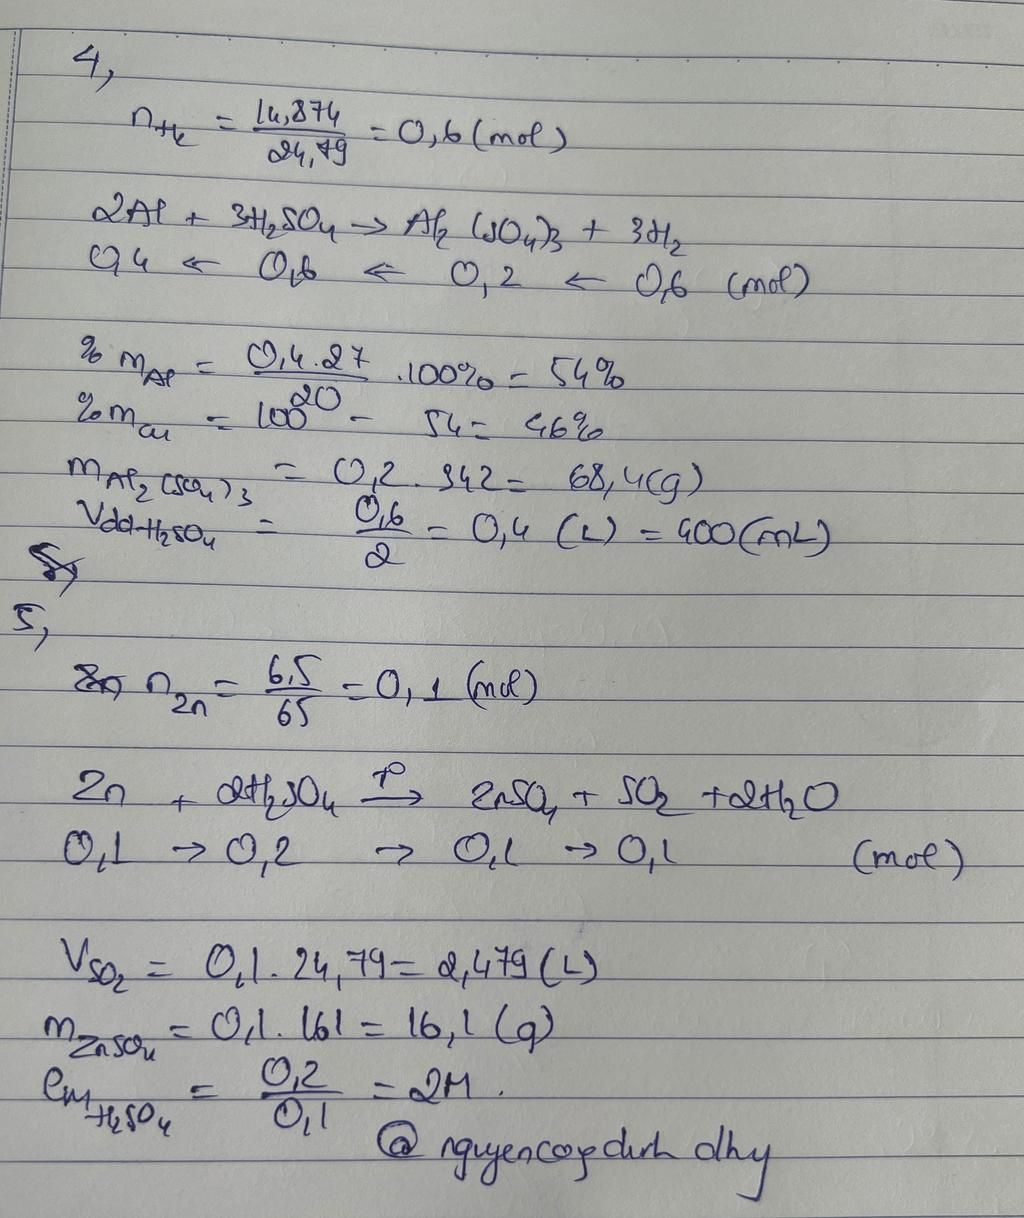 4,
n H₂ = 14,874 / 24,79 = 0,6 (mol)
2Al + 3H₂SO₄ → Al₂ (SO₄)₃ + 3H₂
0,4 ← 0,6 ← 0,2 ← 0,6 (mol)
% m Al = 0,4 . 27 / 20 . 100% = 54%
% m Cu = 100 - 54 = 46%
m Al₂(SO₄)₃ = 0,2 . 342 = 68,4 (g)
Vdd H₂SO₄ = 0,6 / 2 = 0,4 (L) = 400 (mL)
5,
n Zn = 6,5 / 65 = 0,1 (mol)
Zn + 2H₂SO₄ →(t°) ZnSO₄ + SO₂ + 2H₂O
0,1 → 0,2 → 0,1 → 0,1 (mol)
V SO₂ = 0,1 . 24,79 = 2,479 (L)
m ZnSO₄ = 0,1 . 161 = 16,1 (g)
CM H₂SO₄ = 0,2 / 0,1 = 2M .